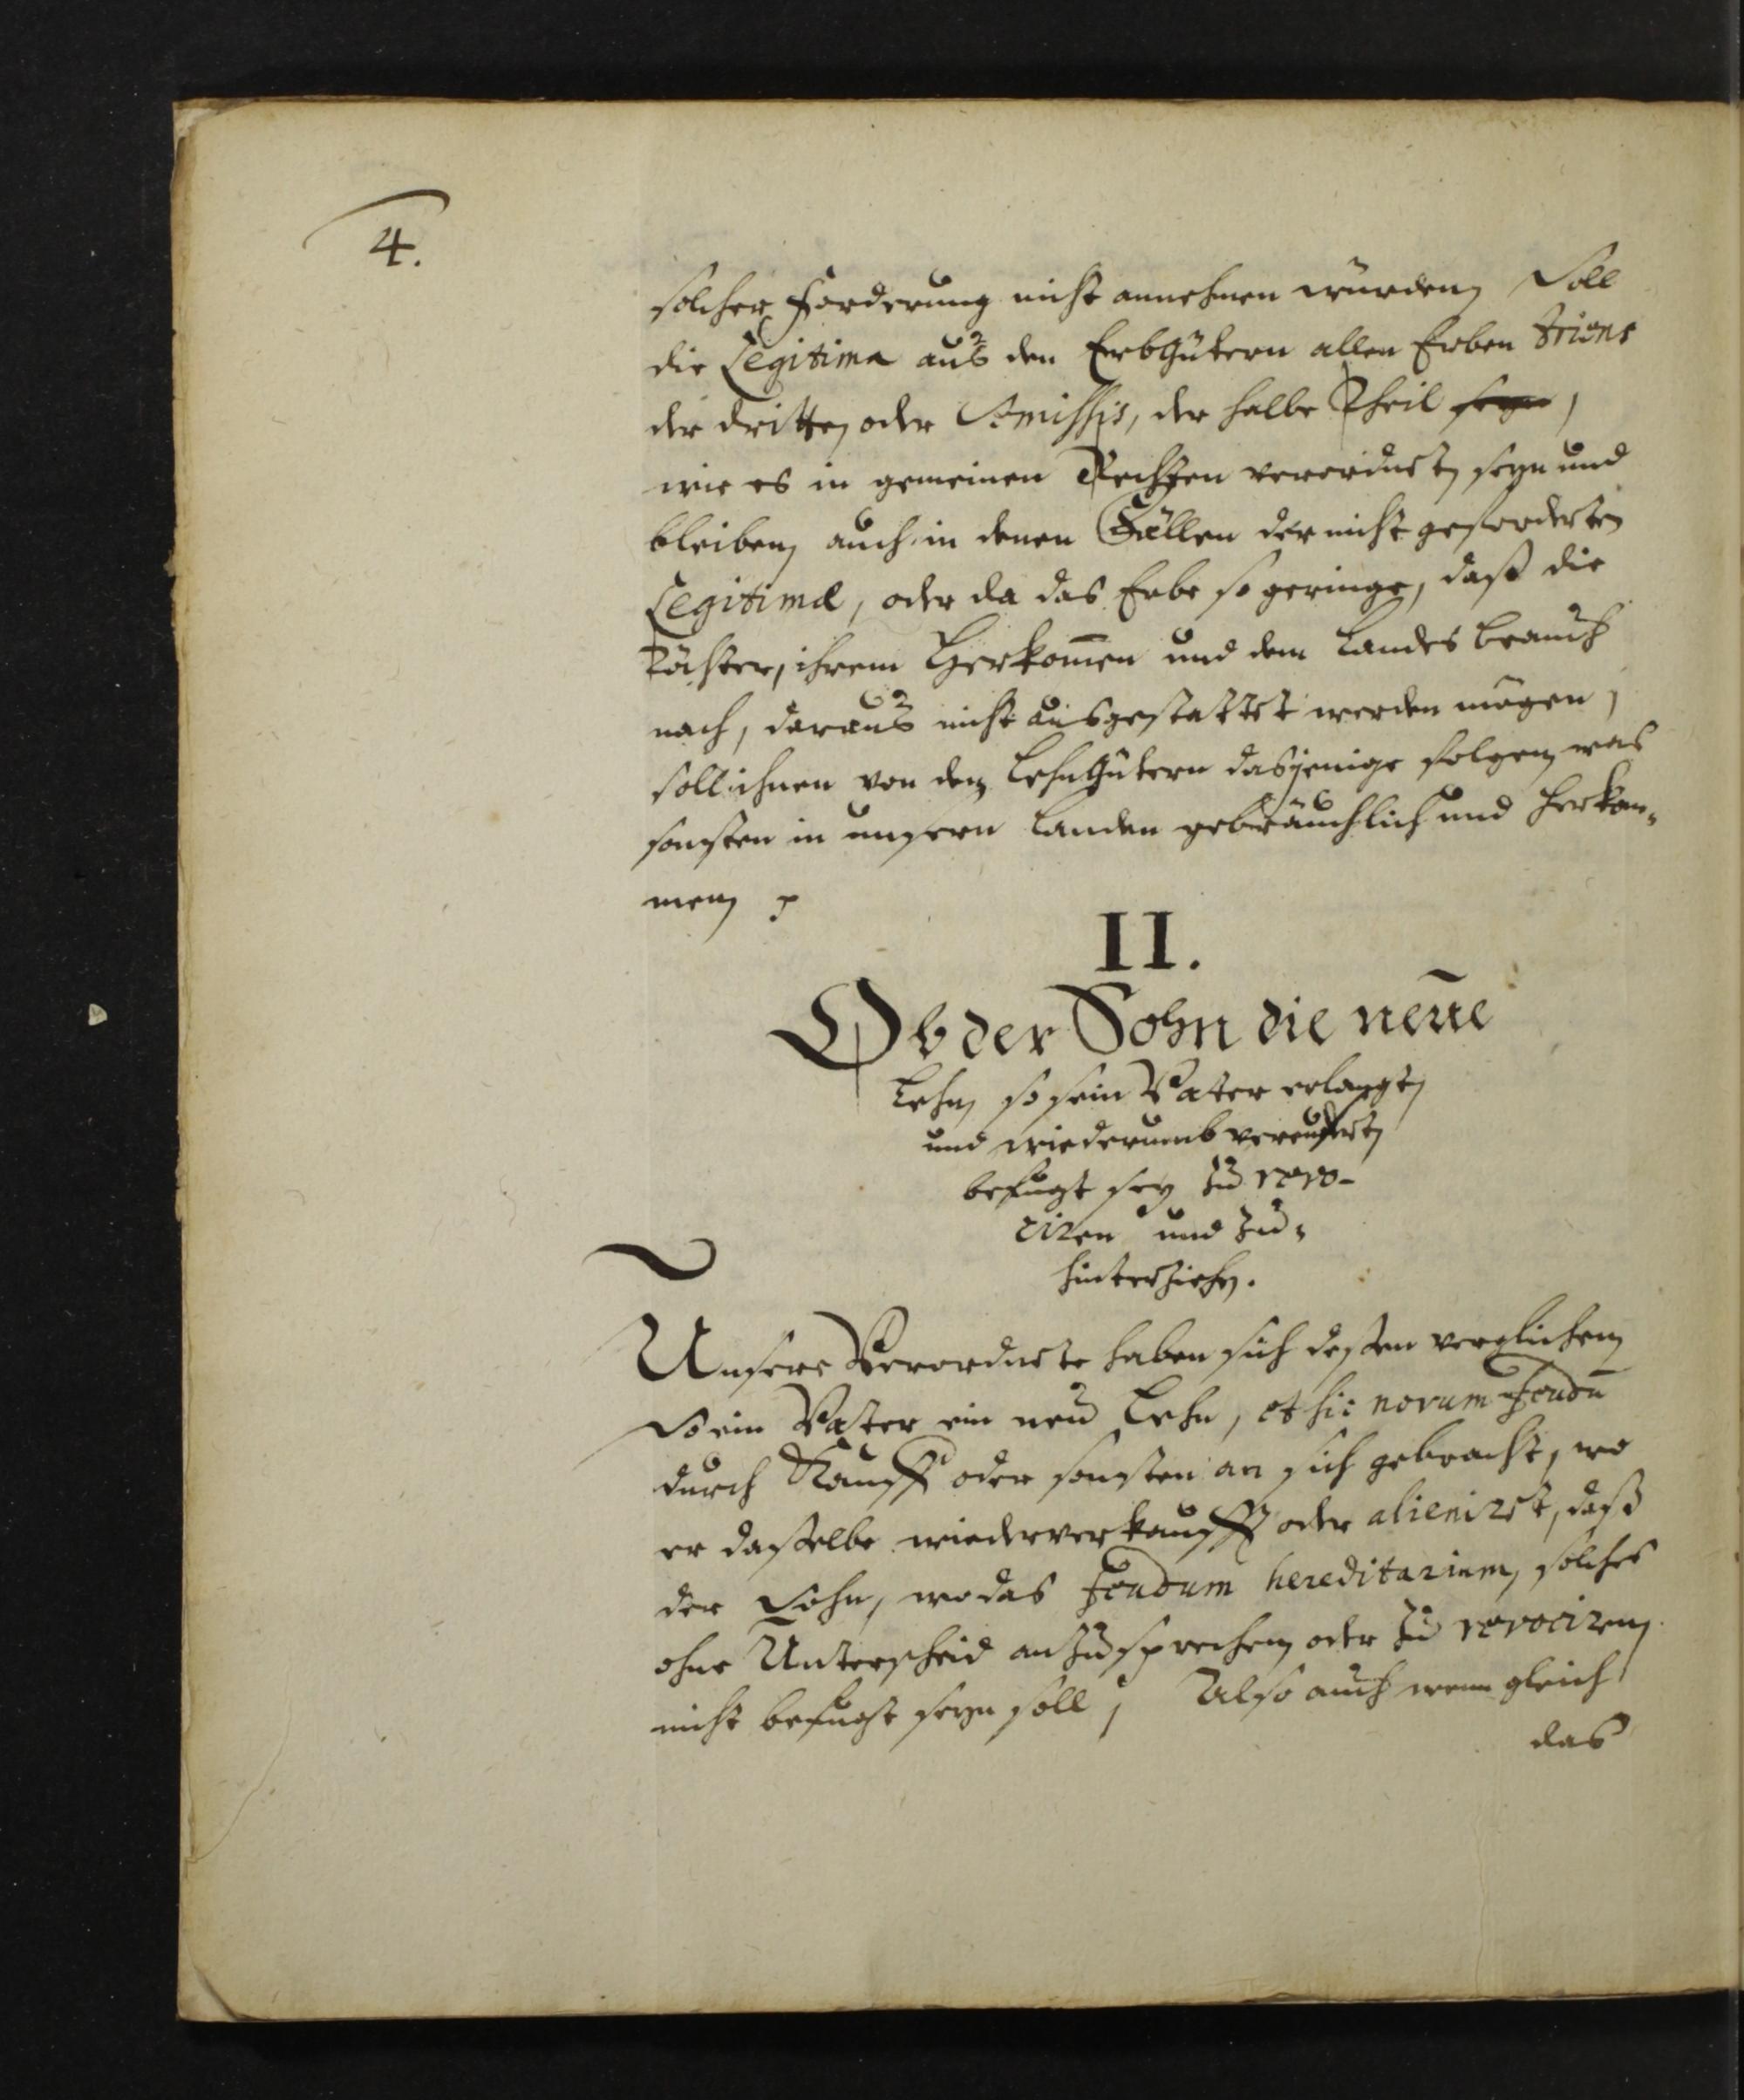 4.
solcher forderung nicht annehmen würden, Soll
die Legitima aus den Erbgütern allen Erben triens
der dritte, oder Semissis, der halbe Theil seyn,
wie es in gemeinen Rechten verordnet, seyn und
bleiben, auch in denen Fällen der nicht geforderten
Legitimæ, oder da das Erbe so geringe, daß die
Töchter, ihrem Herkom̄en und dem Landes brauch
nach, daraus nicht ausgestattet werden mögen,
soll ihnen von den Lehngütern dasjenige folgen, was
sonsten in unsern Landen gebräuchlich und herkom-
men
II.
Ob der Sohn die neue
Lehn, so sein Vater erlanget,
und wiederumb vereusert,
befugt sey zu revo-
ciren und zu-
hinterziehen.
Unsere Verordnete haben sich dessen verglichen,
So ein Vater ein neu Lehn, et sic novum feudū
durch Kauff oder sonsten an sich gebracht, wo
er dasselbe wiederverkaufft oder alieniret, daß
der Sohn, wo das feudum hereditarium, solches
ohne Unterscheid anzusprechen, oder zu revociren,
nicht befugt seyn soll, Also auch wenn gleich
das